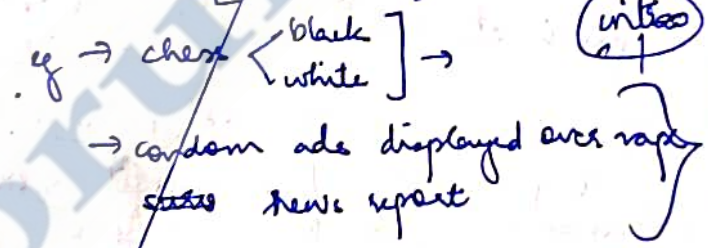 eg → chess < black
white ] → intro
→ condom ads displayed over rape
news report